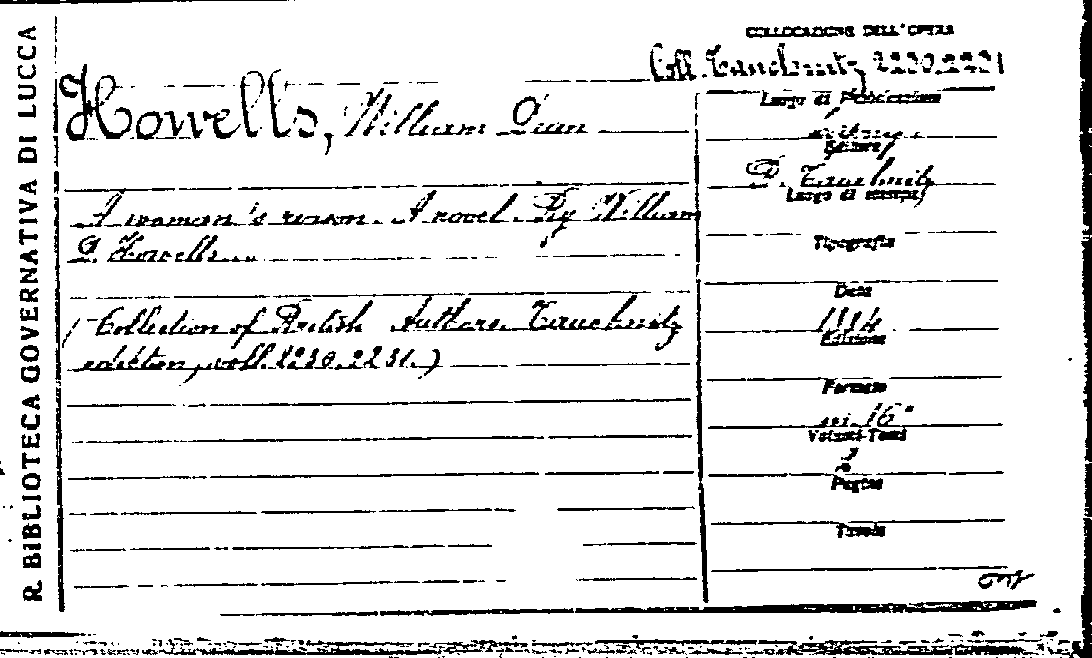 R. BIBLIOTECA GOVERNATIVA DI LUCCA
COLLOCAZIONE DELL'OPERA
Coll. Tauchnitz 2230.2231
Howells, William Dean
A woman's reason. A novel. By William
D. Howells...
(Collection of British Authors. Tauchnitz
edition, voll. 2230.2231.)
Luogo di Pubblicazione
Editore
B. Tauchnitz
Luogo di stampa
Tipografia
Data
1884
Edizione
Formato
in 16°
Volumi-Tomi
2
Pagine
Tavole